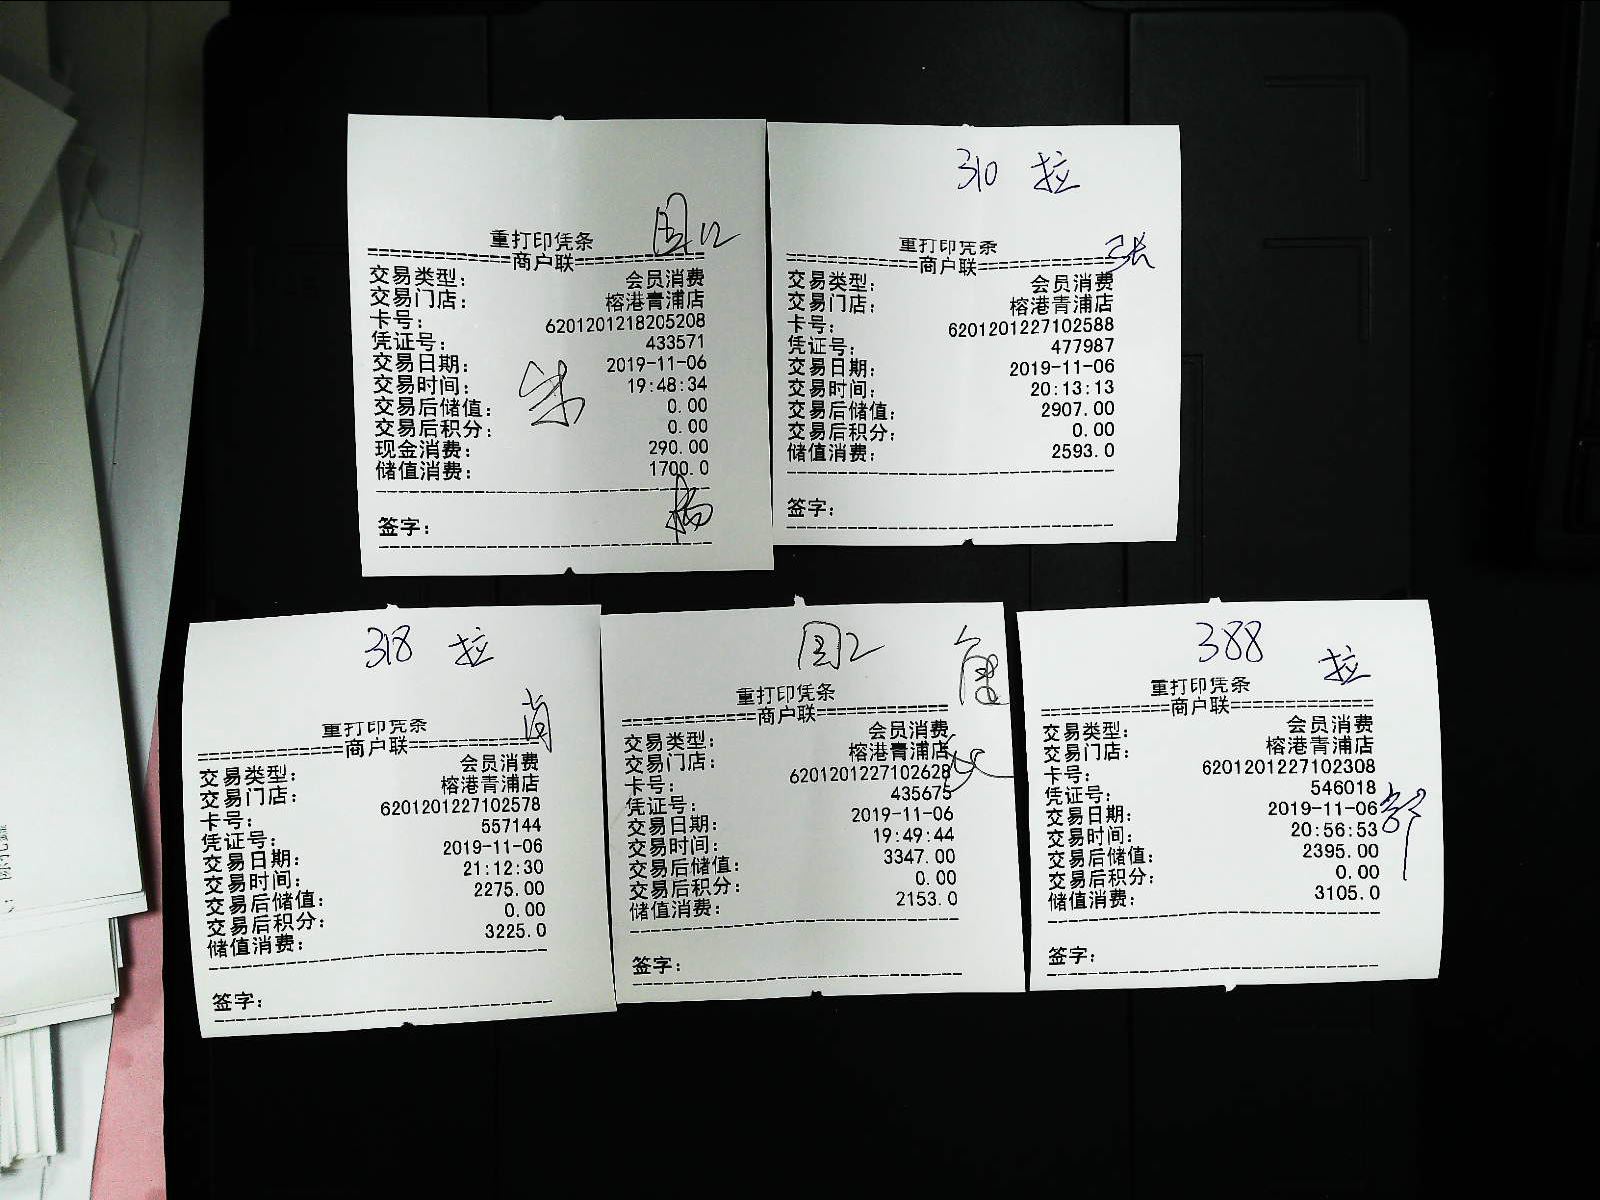 重打印凭条
============商户联============
交易类型： 会员消费
交易门店： 榕港青浦店
卡号： 6201201218205208
凭证号： 433571
交易日期： 2019-11-06
交易时间： 19:48:34
交易后储值： 0.00
交易后积分： 0.00
现金消费： 290.00
储值消费： 1700.0
杨
签字：
310 拉
重打印凭条
张
============商户联============
交易类型： 会员消费
交易门店： 榕港青浦店
卡号： 6201201227102588
凭证号： 477987
交易日期： 2019-11-06
交易时间： 20:13:13
交易后储值： 2907.00
交易后积分： 0.00
储值消费： 2593.0
签字：
318 拉
肖
重打印凭条
============商户联============
交易类型： 会员消费
交易门店： 榕港青浦店
卡号： 6201201227102578
凭证号： 557144
交易日期： 2019-11-06
交易时间： 21:12:30
交易后储值： 2275.00
交易后积分： 0.00
储值消费： 3225.0
签字：
重打印凭条
============商户联============
交易类型： 会员消费
交易门店： 榕港青浦店
卡号： 6201201227102628
凭证号： 435675
交易日期： 2019-11-06
交易时间： 19:49:44
交易后储值： 3347.00
交易后积分： 0.00
储值消费： 2153.0
签字：
388 拉
重打印凭条
============商户联============
交易类型： 会员消费
交易门店： 榕港青浦店
卡号： 6201201227102308
凭证号： 546018
交易日期： 2019-11-06
交易时间： 20:56:53
交易后储值： 2395.00
交易后积分： 0.00
储值消费： 3105.0
签字：